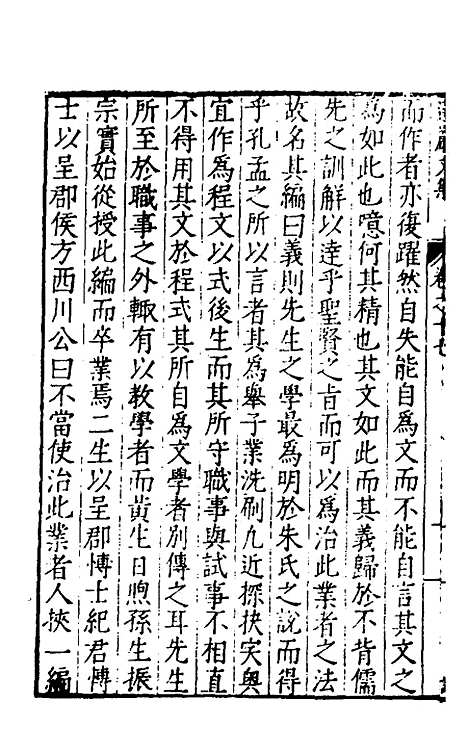 而作者亦復躍然自失能自爲文而不能自言其文之
爲如此也噫何其精也其文如此而其義歸於不背儒
先之訓解以達乎聖賢之旨而可以爲治此業者之法
故名其編曰義則先生之學最爲明於朱氏之說而得
乎孔孟之所以言者其爲舉子業洗刷凡近探抉突奥
宜作爲程文以式後生而其所守職事與試事不相直
不得用其文於程式其所自爲文學者別傳之耳先生
所至於職事之外輙有以教學者而黄生日煦孫生振
宗實始從授此編而卒業焉二生以呈郡博士紀君傅
士以呈郡侯方西川公曰不當使治此業者人挾一編